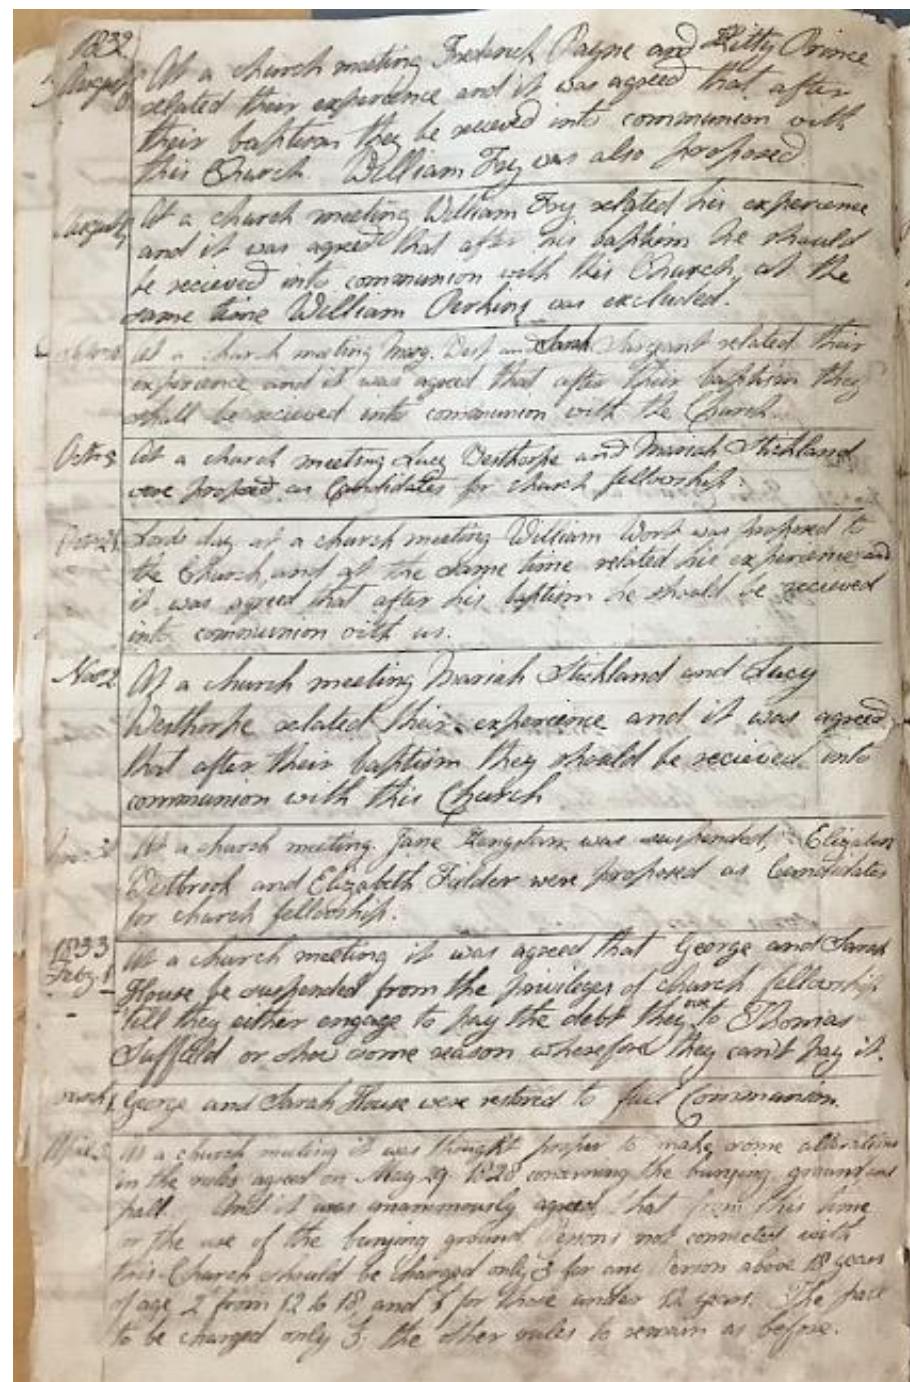 1832
August
At a church meeting Frederick Payne and Kitty Prince
related their experience and it was agreed that after
their baptism they be recieved into communion with
this Church. William Fry was also proposed
August
At a church meeting William Fry related his experience
and it was agreed that after his baptism he should
be recieved into communion with this Church, at the
same time William Perkins was excluded.
At a church meeting Mary. West and Sarah Sargant related their
experience and it was agreed that after their baptism they
shall be recieved into communion with the Church
Octr 5
At a church meeting Lucy Westhorpe and Mariah Stickland
were proposed as Candidates for church fellowship.
Lords day at a church meeting William Wort was proposed to
the Church and at the same time related his experience and
it was agreed that after his baptism he should be recieved
into communion with us.
Nov 2
At a church meeting Mariah Stickland and Lucy
Westhorpe related their experience and it was agreed
that after their baptism they should be recieved into
communion with this Church
At a church meeting. Jane was suspended, Elizabeth
Westbrook and Elizabeth Fielder were proposed as Candidates
for church fellowship.
1833
Feby. 1
At a church meeting it was agreed that George and Sarah
House be suspended from the privileges of church fellowship
till they either engage to pay the debt they owe to Thomas
Suffeld or shew some reason wherefore they can't pay it.
March 1
George and Sarah House were restored to full Communion.
April
At a church meeting it was thought proper to make some alterations
in the rules agreed on May 29 1828 concerning the burying ground and
pall. And it was unanimously agreed that from this time
for the use of the burying ground Persons not connected with
this Church should be Charged only 3 for any Person above 18 years
of age, 2 from 12 to 18, and 1 for those under 12 years. The pall
to be charged only the other rules to remain as before.